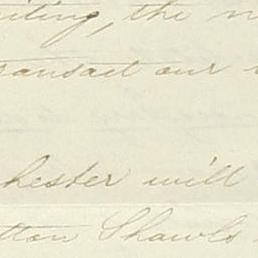 iting, the n
ransact our
hester will
tton Shawls